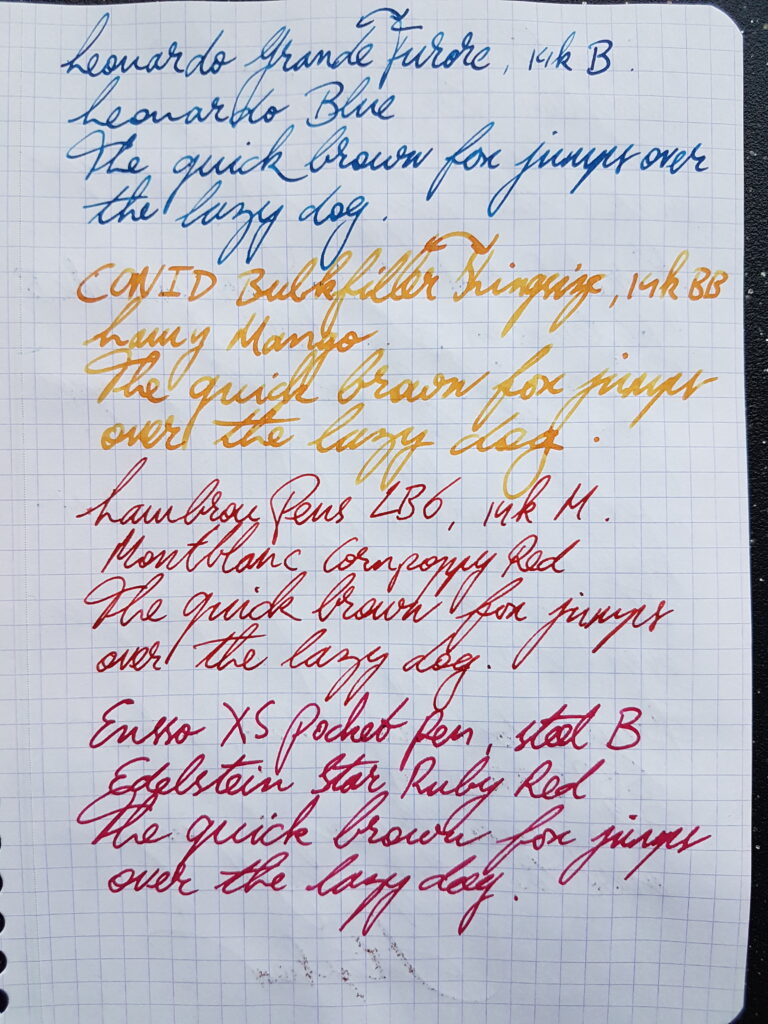 Leonardo Grande Furore, 14k B.
Leonardo Blue
The quick brown fox jumps over
the lazy dog.
CONID Bulkfiller Kingsize, 14k BB
Lamy Mango
The quick brown fox jumps
over the lazy dog.
Lambrou Pens LB6, 14k M.
Montblanc Cornpoppy Red
The quick brown fox jumps
over the lazy dog.
Ensso XS Pocket Pen, steel B
Edelstein Star Ruby Red
The quick brown fox jumps
over the lazy dog.